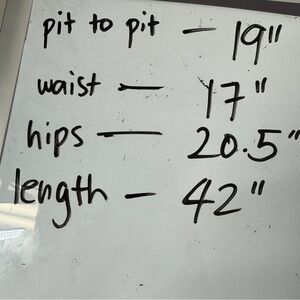 pit to pit — 19"
waist — 17"
hips — 20.5"
length — 42"